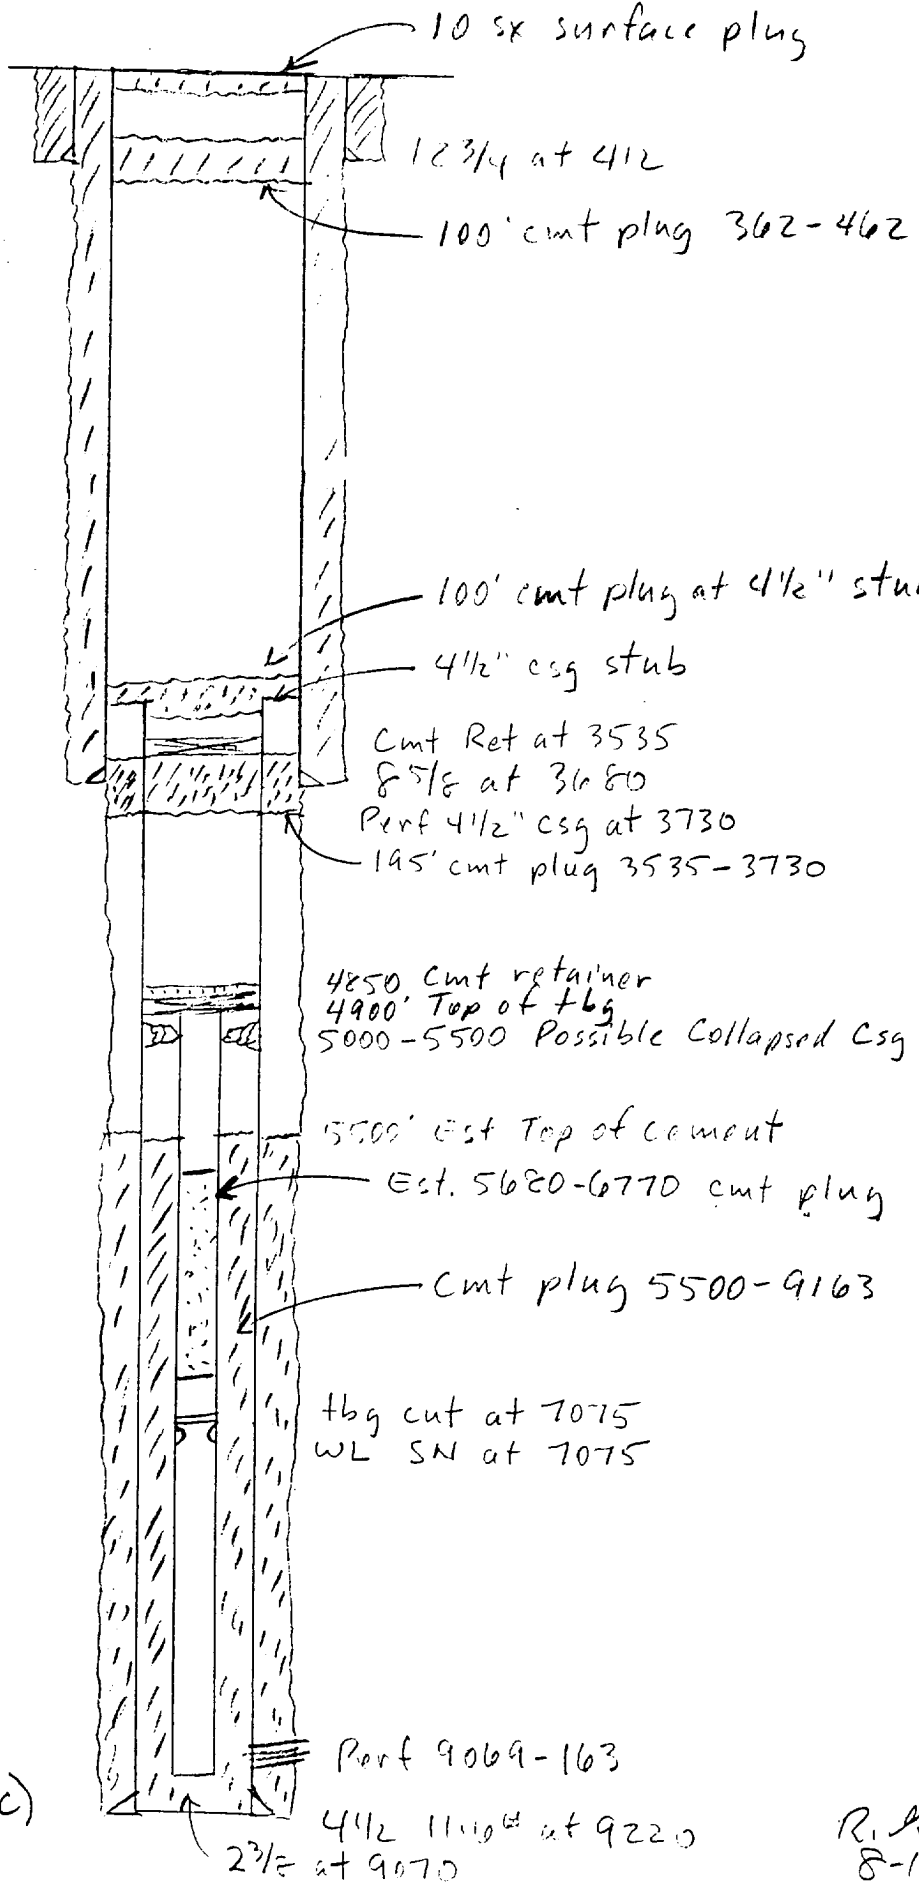 10 sx surface plug
12 3/4 at 412
100' cmt plug 362-462
100' cmt plug at 4 1/2" stu
4 1/2" csg stub
Cmt Ret at 3535
8 5/8 at 3680
Perf 4 1/2" csg at 3730
195' cmt plug 3535-3730
4850 Cmt retainer
4900' Top of tbg
5000-5500 Possible Collapsed Csg
5500' Est Top of cement
Est. 5680-6770 cmt plug
Cmt plug 5500-9163
tbg cut at 7075
WL SN at 7075
Perf 9069-163
c)
4 1/2 11.6# at 9220
2 3/8 at 9070
R.
8-1